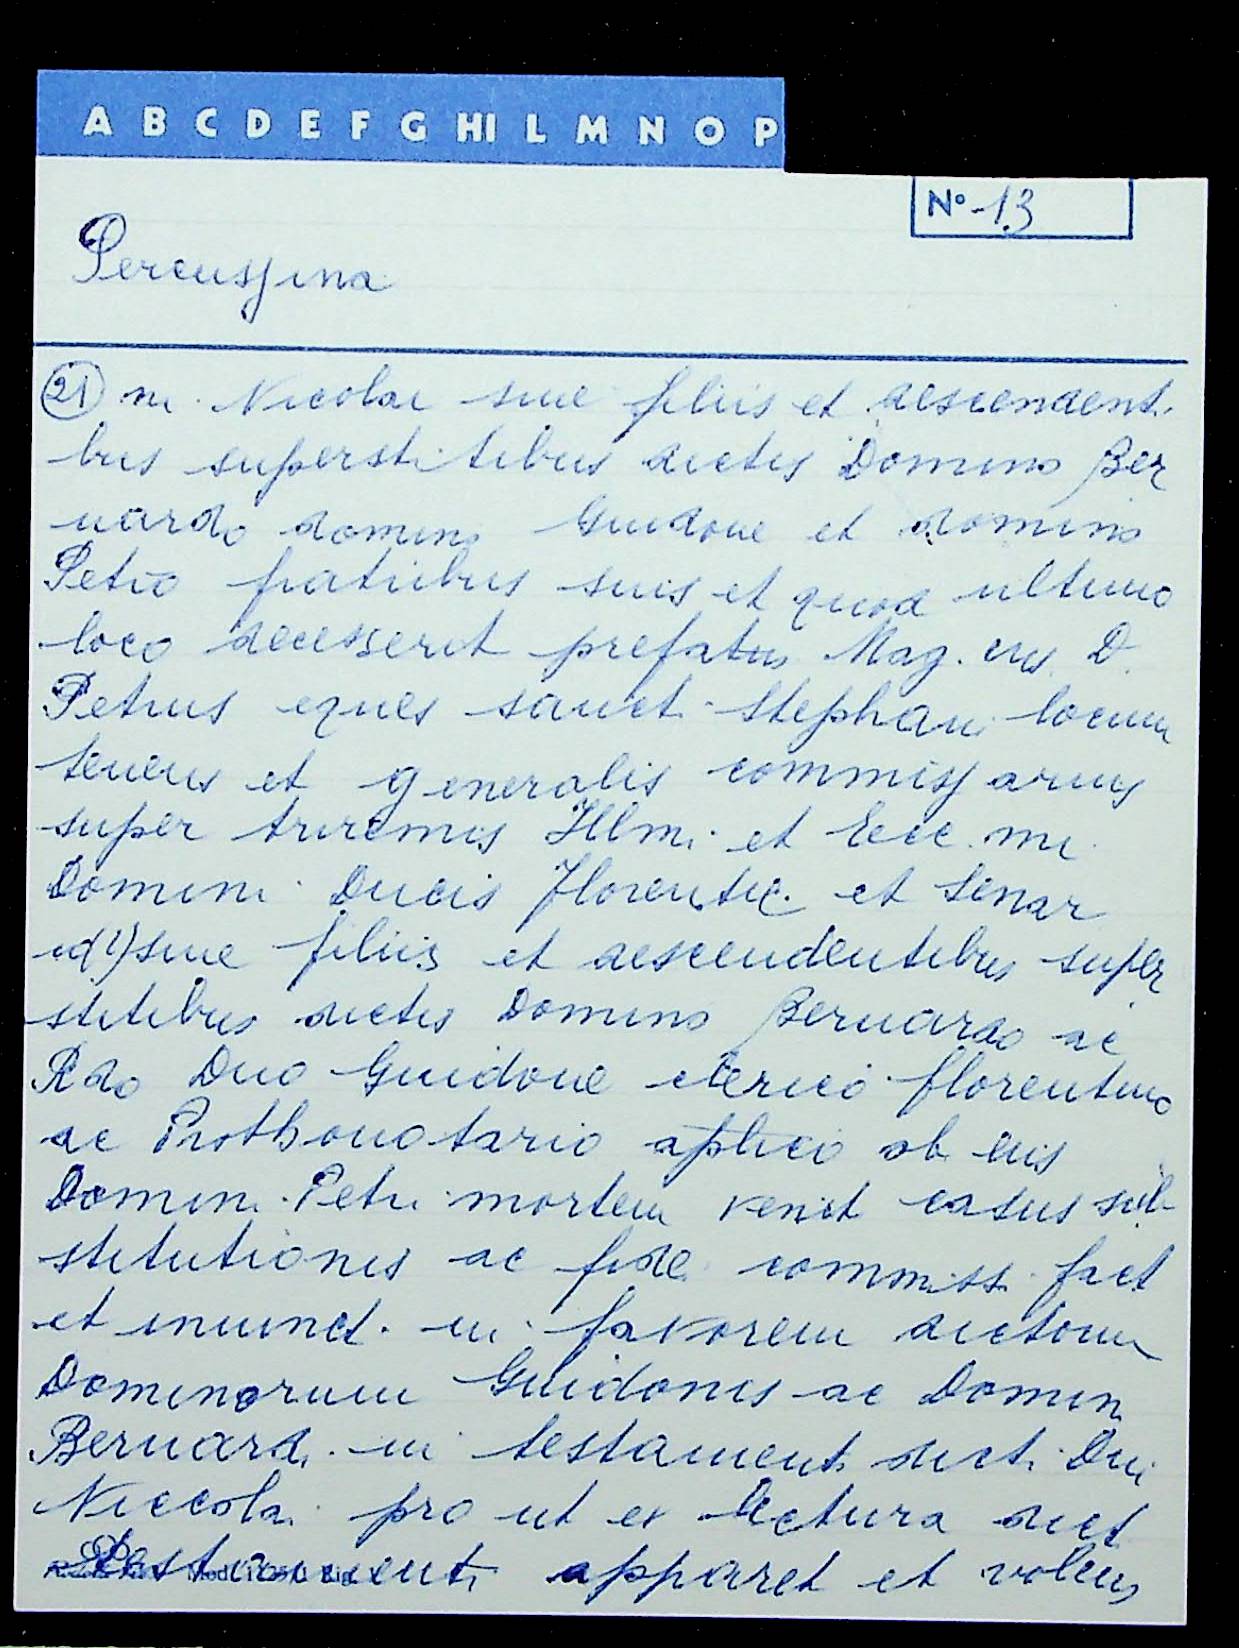 A B C D E F G HI L M N O P
N° 13
Percussina
(21) m. Nicolai sine filiis et descendenti
bus superstitibus dictis Domino Ber
nardo domino Guidone et domino
Petro fratribus suis et quod ultimo
loco decesserit prefatus Mag. cus D.
Petrus eques sancti Stephani locum
tenens et generalis commissarius
super triremis Illmi et Ecc. mi
Domini Ducis Florentie et Senar
id(?) sine filiis et descendentibus super
stitibus dictis Domino Bernardo ac
Rdo Dno Guidone clerico florentino
ac Prothonotario aplico ob eius
Domini Petri mortem venit casus sub
stitutionis ac fidei commissi fact
et iniunct. in favorem dictorum
Dominorum Guidonis ac Domini
Bernardi in testamenti dicti Dni
Niccolai pro ut ex lectura dict
testamenti apparet et volens